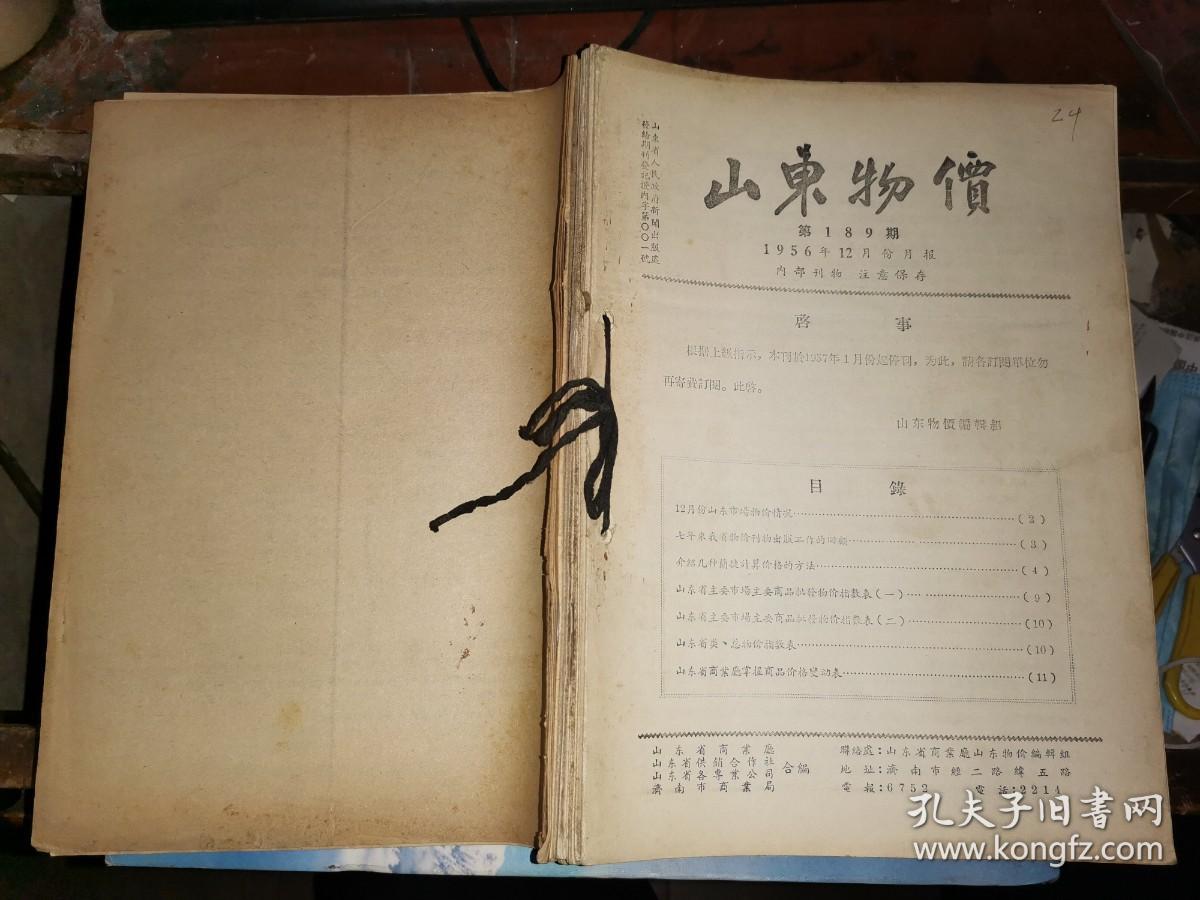 24
山东省人民政府新聞出版處
發給期刊登記證内字第〇〇一號
山東物價
第189期
1956年12月份月报
内部刊物 注意保存
啓事
根据上級指示，本刊於1957年1月份起停刊，为此，請各訂閱單位勿
再寄費訂閱。此啓。
山东物價編輯組
目錄
12月份山东市場物价情况……(2)
七年来我省物价刊物出版工作的回顧……(3)
介紹几种簡捷計算价格的方法……(4)
山东省主要市場主要商品批發物价指数表(一)……(9)
山东省主要市場主要商品批發物价指数表(二)……(10)
山东省类、总物价指数表……(10)
山东省商業廳掌握商品价格變动表……(11)
山东省商業廳
山东省供銷合作社
山东省各專業公司
濟南市商業局
合編
聯絡處：山东省商業廳山东物价編輯組
地址：濟南市經二路緯五路
電報：6752 電話：2214
孔夫子旧书网
www.kongfz.com